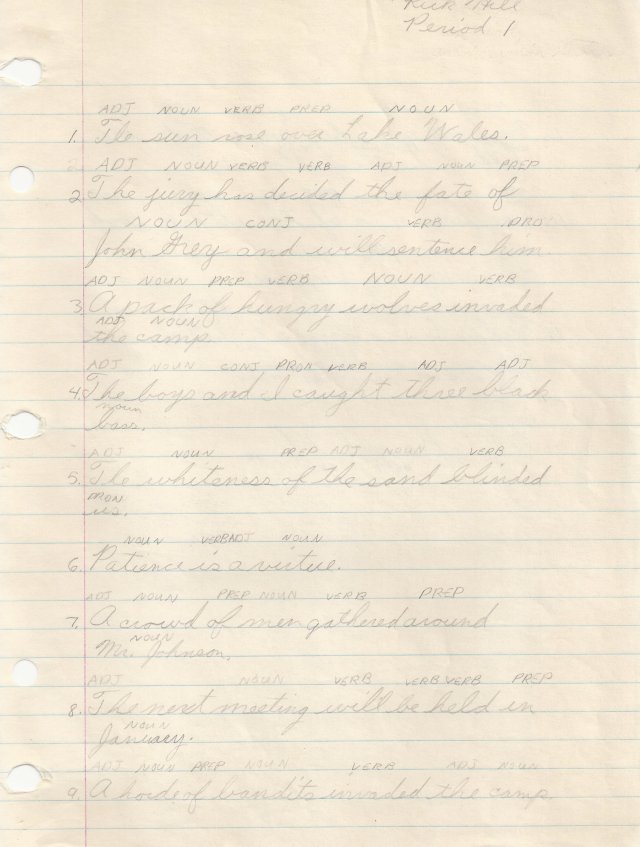 Rick Hill
Period 1
ADJ NOUN VERB PREP NOUN
1. The sun rose over Lake Wales.
ADJ NOUN VERB VERB ADJ NOUN PREP
2. The jury has decided the fate of
NOUN CONJ VERB PRO
John Grey and will sentence him.
ADJ NOUN PREP VERB NOUN VERB
3. A pack of hungry wolves invaded
ADJ NOUN
the camp.
ADJ NOUN CONJ PRON VERB ADJ ADJ
4. The boys and I caught three black
NOUN
bass.
ADJ NOUN PREP ADJ NOUN VERB
5. The whiteness of the sand blinded
PRON
us.
NOUN VERB ADJ NOUN
6. Patience is a virtue.
ADJ NOUN PREP NOUN VERB PREP
7. A crowd of men gathered around
NOUN
Mr. Johnson.
ADJ NOUN VERB VERB VERB PREP
8. The next meeting will be held in
NOUN
January.
ADJ NOUN PREP NOUN VERB ADJ NOUN
9. A horde of bandits invaded the camp.